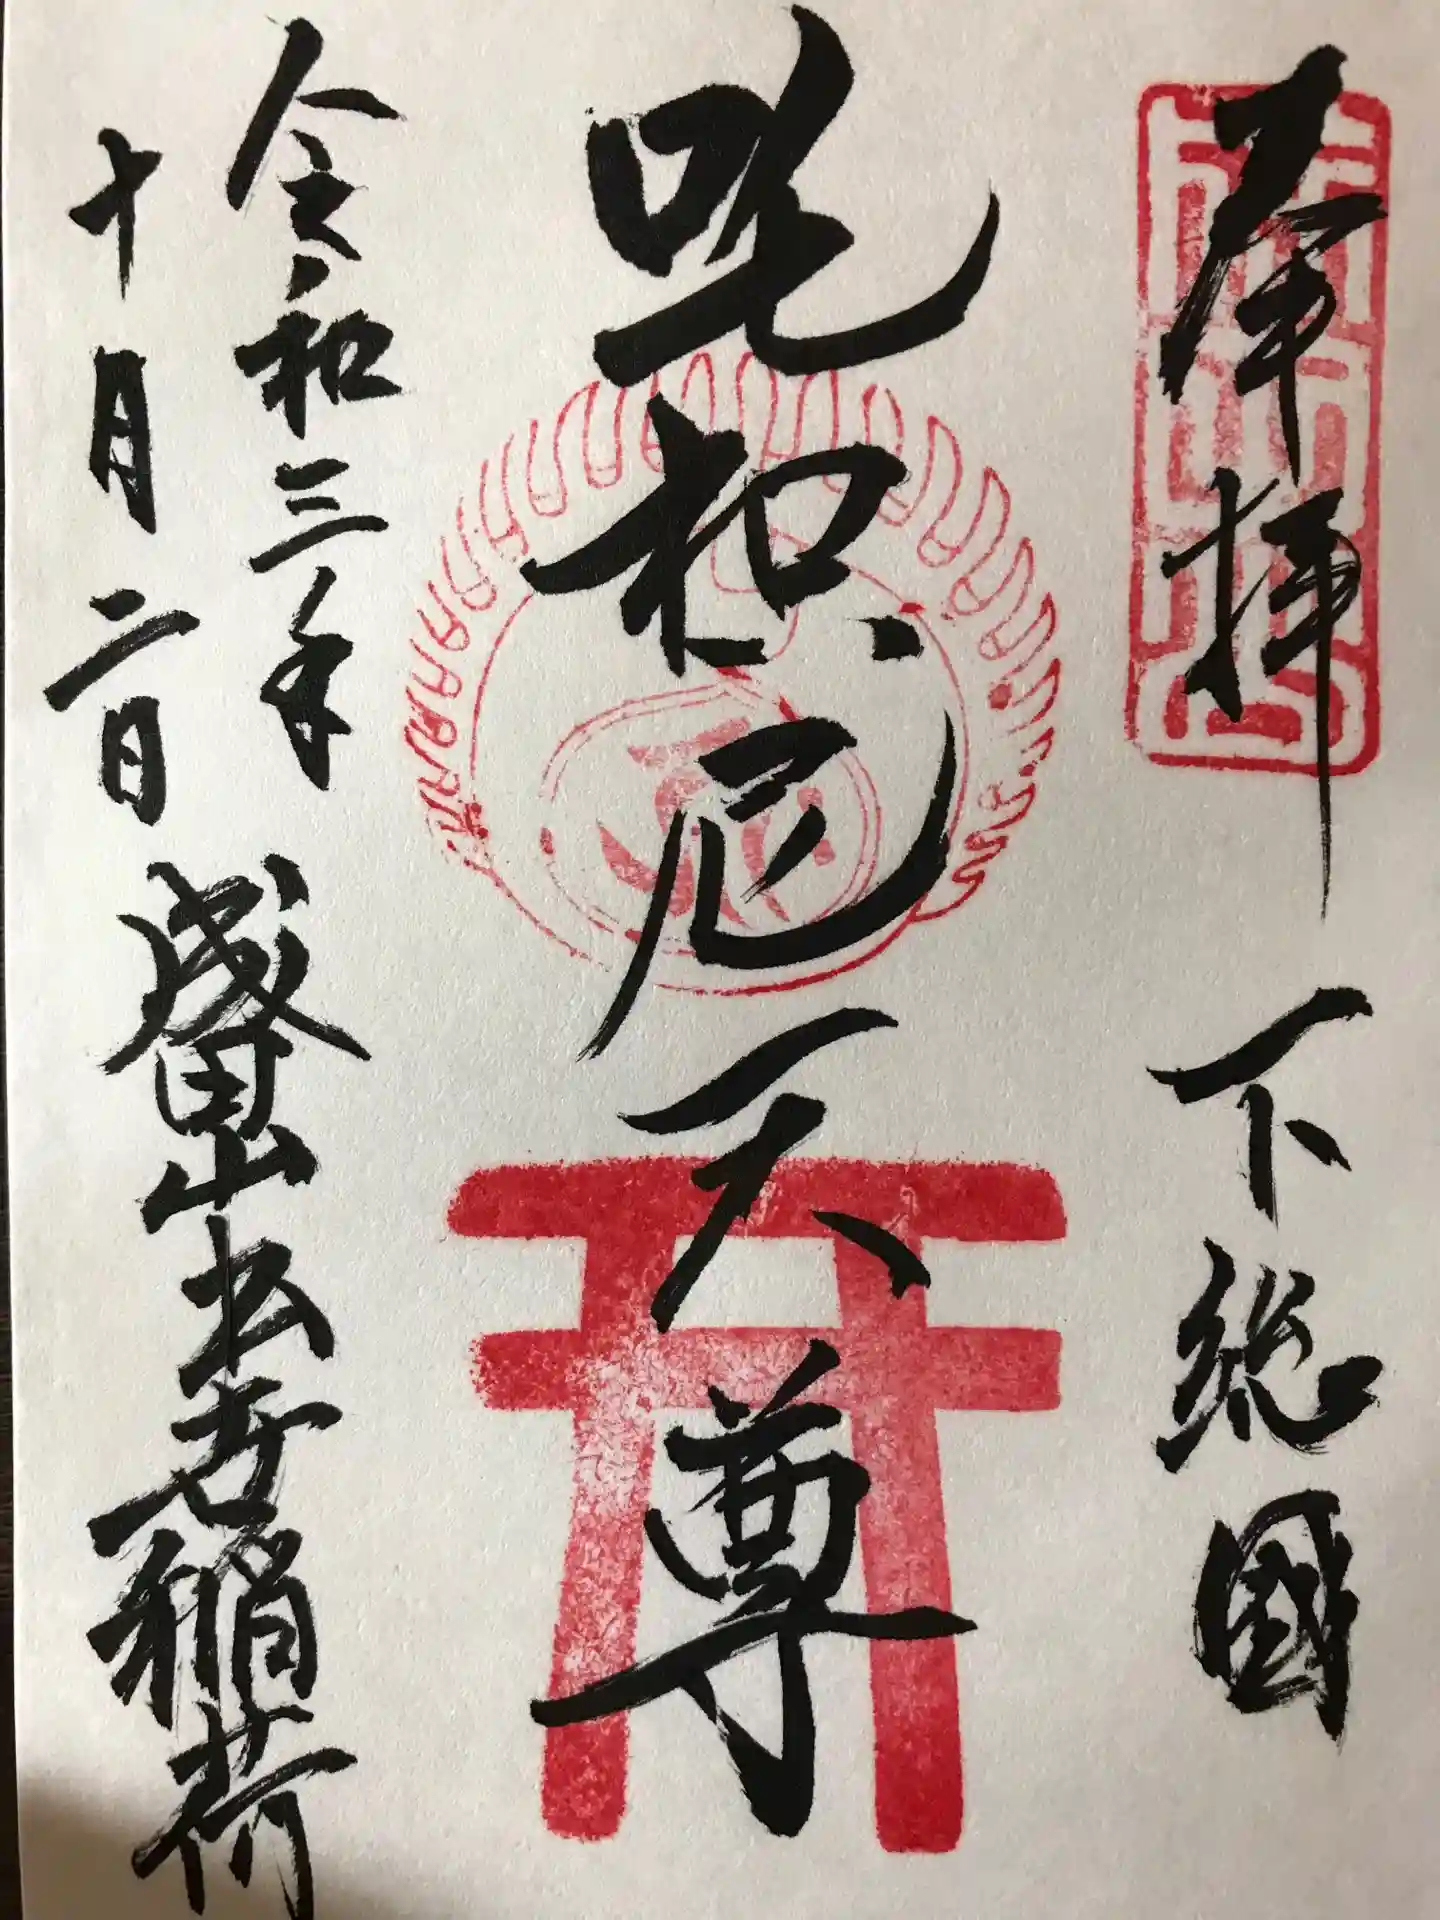 奉拝 下総國
吒枳尼天尊
令和三年
十月二日
成田山出世稲荷